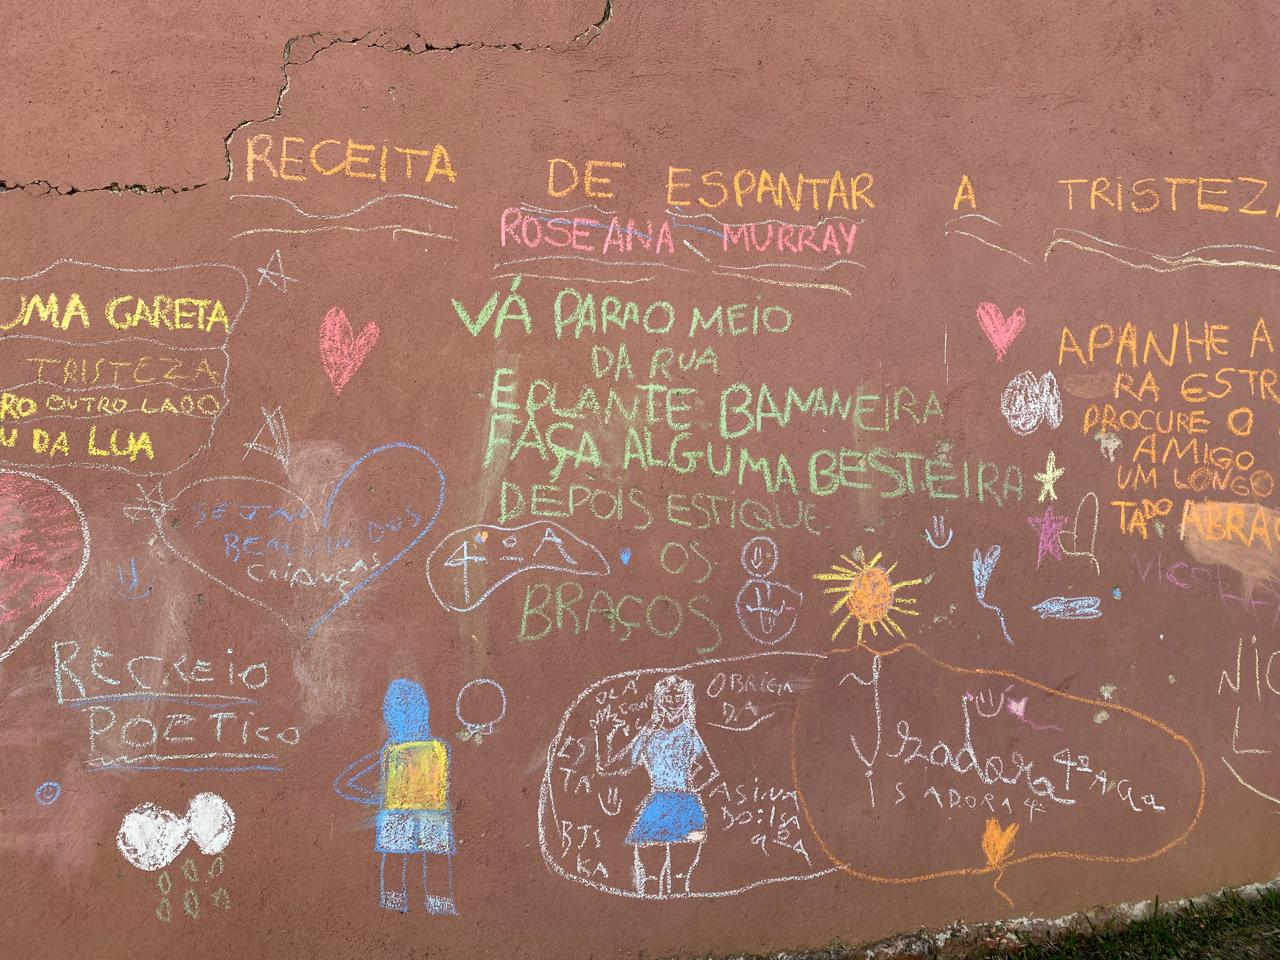 RECEITA DE ESPANTAR A TRISTEZA
ROSEANA MURRAY
UMA CARETA
TRISTEZA
RO OUTRO LADO
DA LUA
VÁ PARAO MEIO
DA RUA
E PLANTE BANANEIRA
FAÇA ALGUMA BESTEIRA
DEPOIS ESTIQUE
OS
BRAÇOS
APANHE A
RA ESTR
PROCURE O
AMIGO
UM LONGO
TADO ABRAÇ
SEJAM
BEM VINDOS
CRIANÇAS
4º A
RECREIO
POETICO
OBRIGA
DA
ES
TA
BJS
KA
Izadora 4º A
ISADORA 4º
NICOLE
NIC